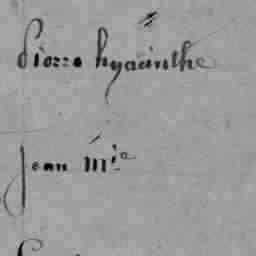 Pierre hyacinthe
Jean M.ie